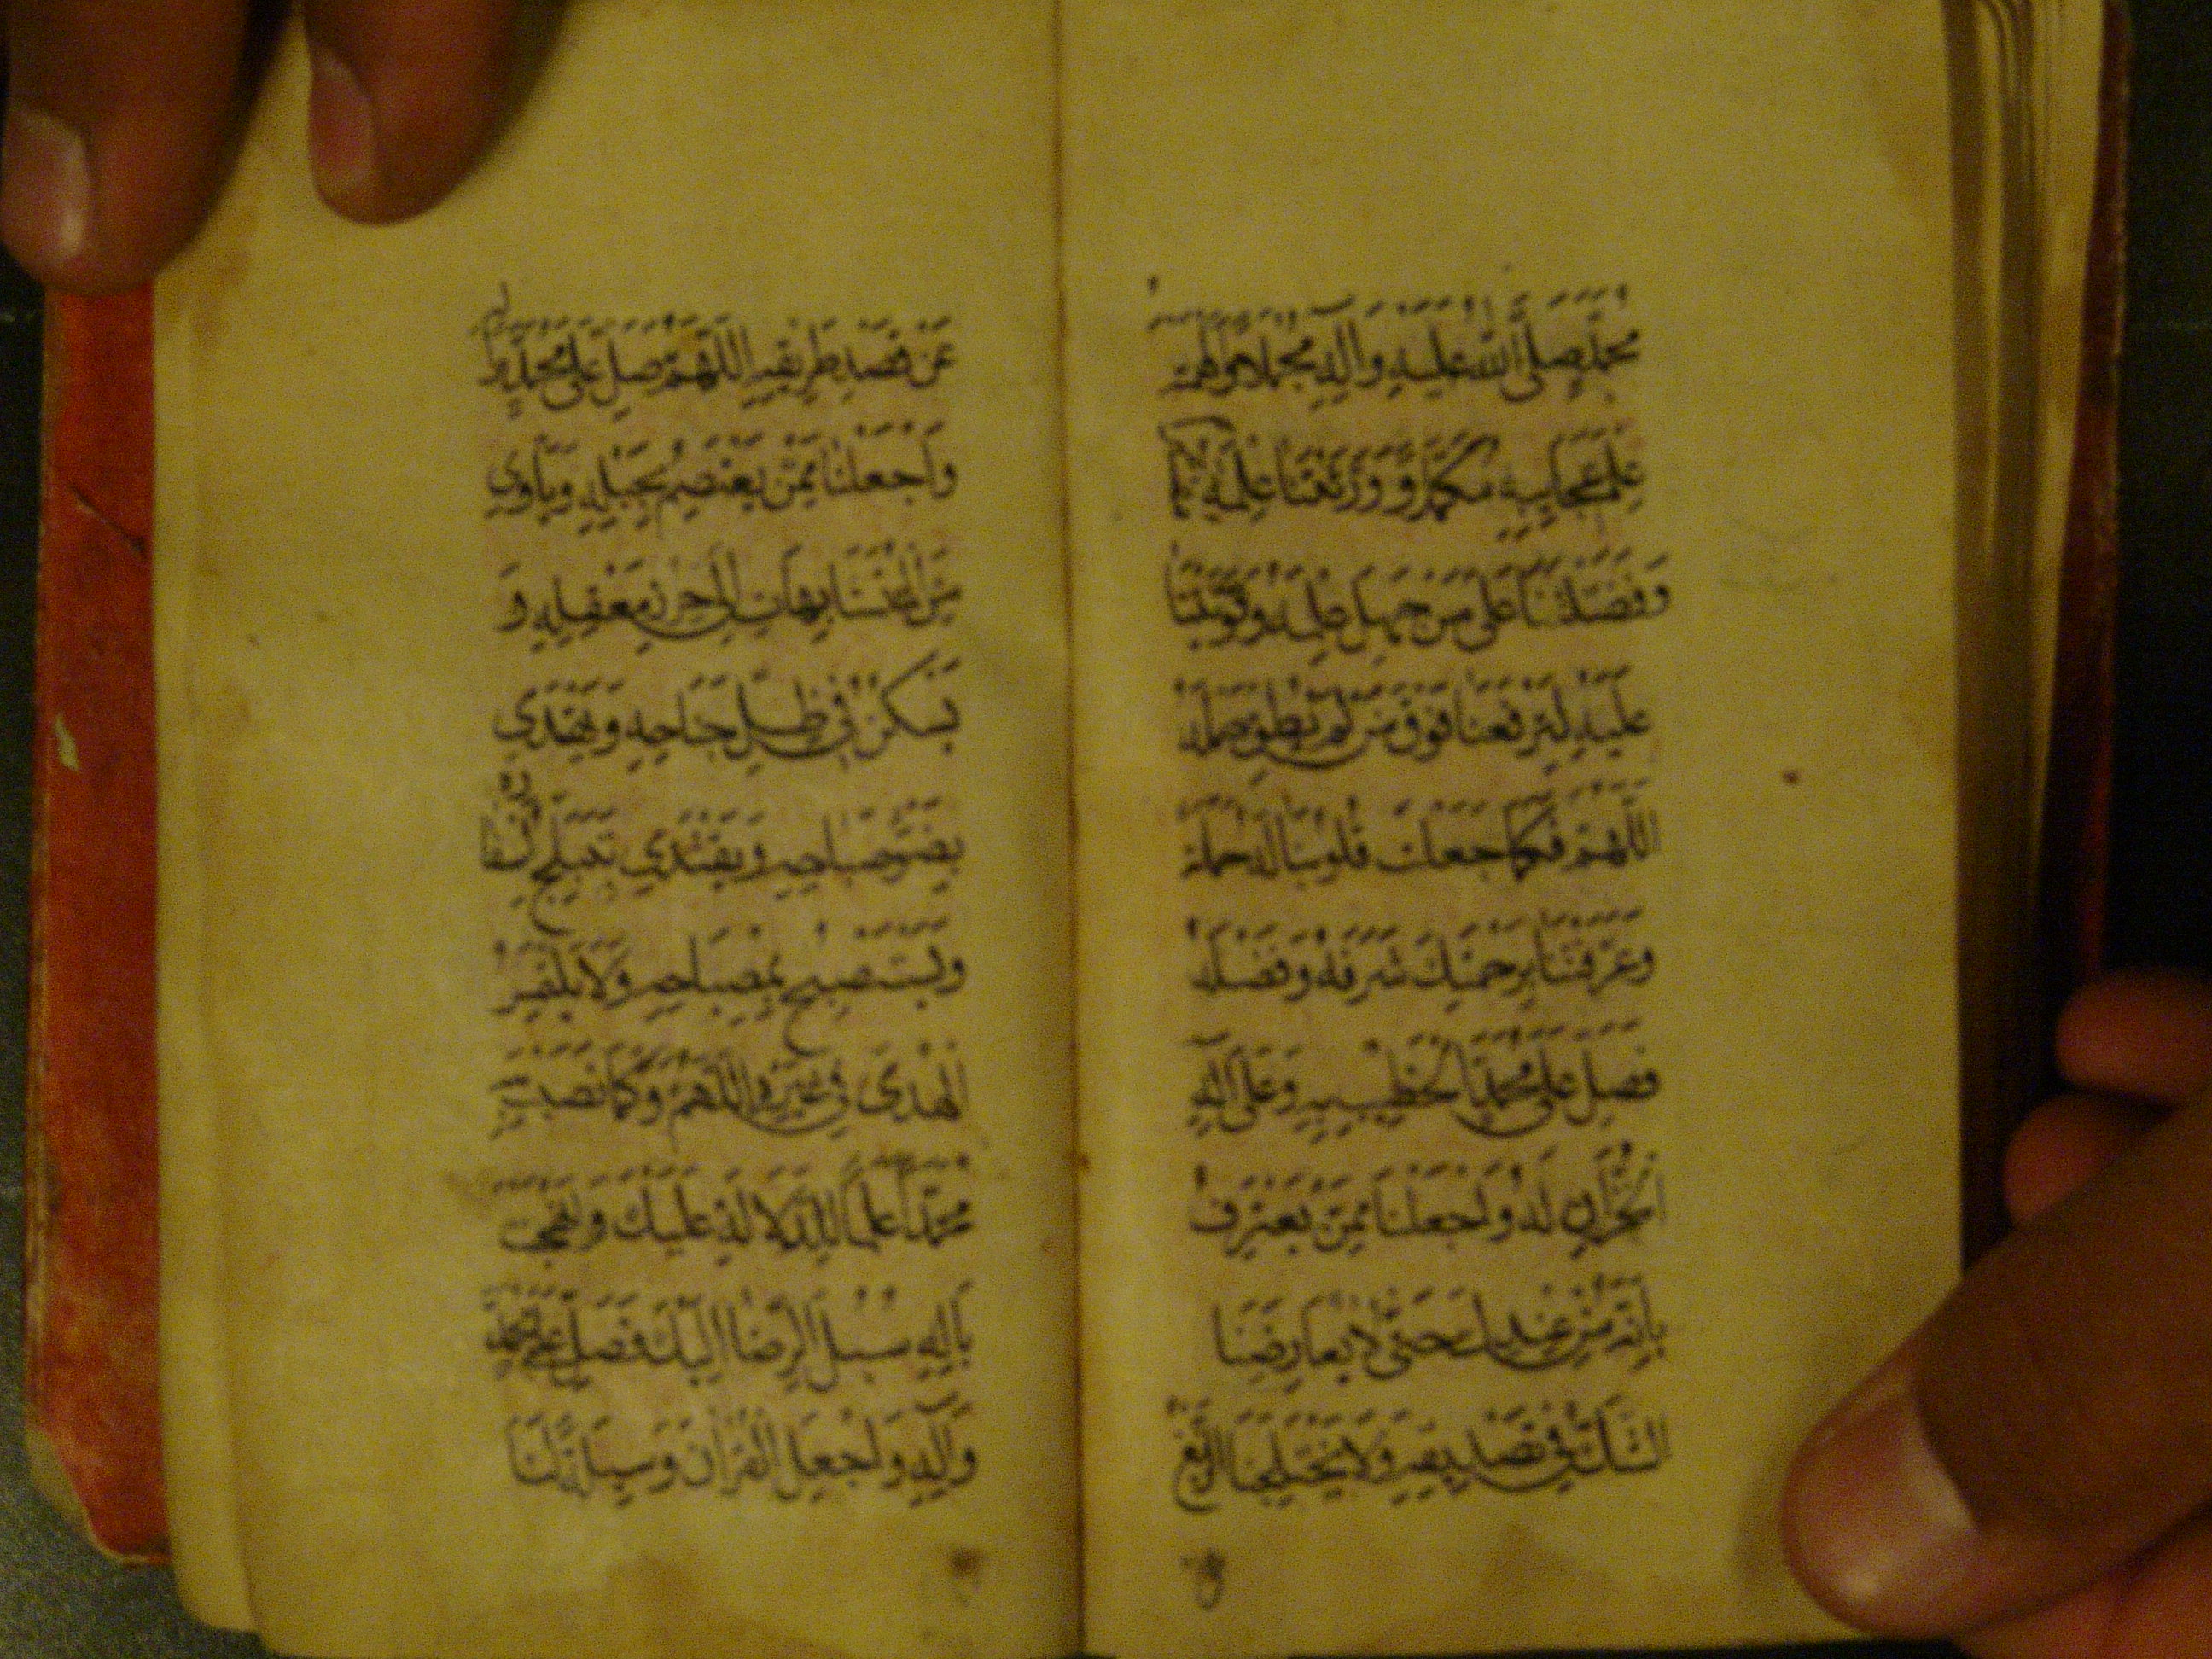 مُحَمَّدٍ صَلَّى اللهُ عَلَيْهِ وَآلِهِ مُجْمَلًا وَأَلْهَمْتَهُ
عِلْمَ عَجَائِبِهِ مُكَمَّلًا وَوَرَّثْتَنَا عِلْمَهُ
وَفَضَّلْتَنَا عَلَى مَنْ جَهِلَ عِلْمَهُ وَقَوَّيْتَنَا
عَلَيْهِ لِتَرْفَعَنَا فَوْقَ مَنْ لَمْ يُطِقْ حَمْلَهُ
اَللّٰهُمَّ فَكَمَا جَعَلْتَ قُلُوبَنَا لَهُ حَمَلَةً
وَعَرَّفْتَنَا بِرَحْمَتِكَ شَرَفَهُ وَفَضْلَهُ
فَصَلِّ عَلَى مُحَمَّدٍ الْخَطِيبِ بِهِ وَعَلَى آلِهِ
الْخُزَّانِ لَهُ وَاجْعَلْنَا مِمَّنْ يَعْتَرِفُ
بِأَنَّهُ مِنْ عِنْدِكَ حَتَّى لَا يُعَارِضَنَا
الشَّكُّ فِي تَصْدِيقِهِ وَلَا يَخْتَلِجَنَا الزَّيْغُ
عَنْ قَصْدِ طَرِيقِهِ اَللّٰهُمَّ صَلِّ عَلَى مُحَمَّدٍ وَآلِهِ
وَاجْعَلْنَا مِمَّنْ يَعْتَصِمُ بِحَبْلِهِ وَيَأْوِي
مِنَ الْمُتَشَابِهَاتِ إِلَى حِرْزِ مَعْقِلِهِ وَ
يَسْكُنُ فِي ظِلِّ جَنَاحِهِ وَيَهْتَدِي
بِضَوْءِ صَبَاحِهِ وَيَقْتَدِي بِتَبَلُّجِ إِسْفَارِهِ
وَيَسْتَصْبِحُ بِمِصْبَاحِهِ وَلَا يَلْتَمِسُ
الْهُدَى فِي غَيْرِهِ اَللّٰهُمَّ وَكَمَا نَصَبْتَ بِهِ
مُحَمَّدًا عَلَمًا لِلدَّلَالَةِ عَلَيْكَ وَأَنْهَجْتَ
بِآلِهِ سُبُلَ الرِّضَا إِلَيْكَ فَصَلِّ عَلَى مُحَمَّدٍ
وَآلِهِ وَاجْعَلِ الْقُرْآنَ وَسِيلَةً لَنَا